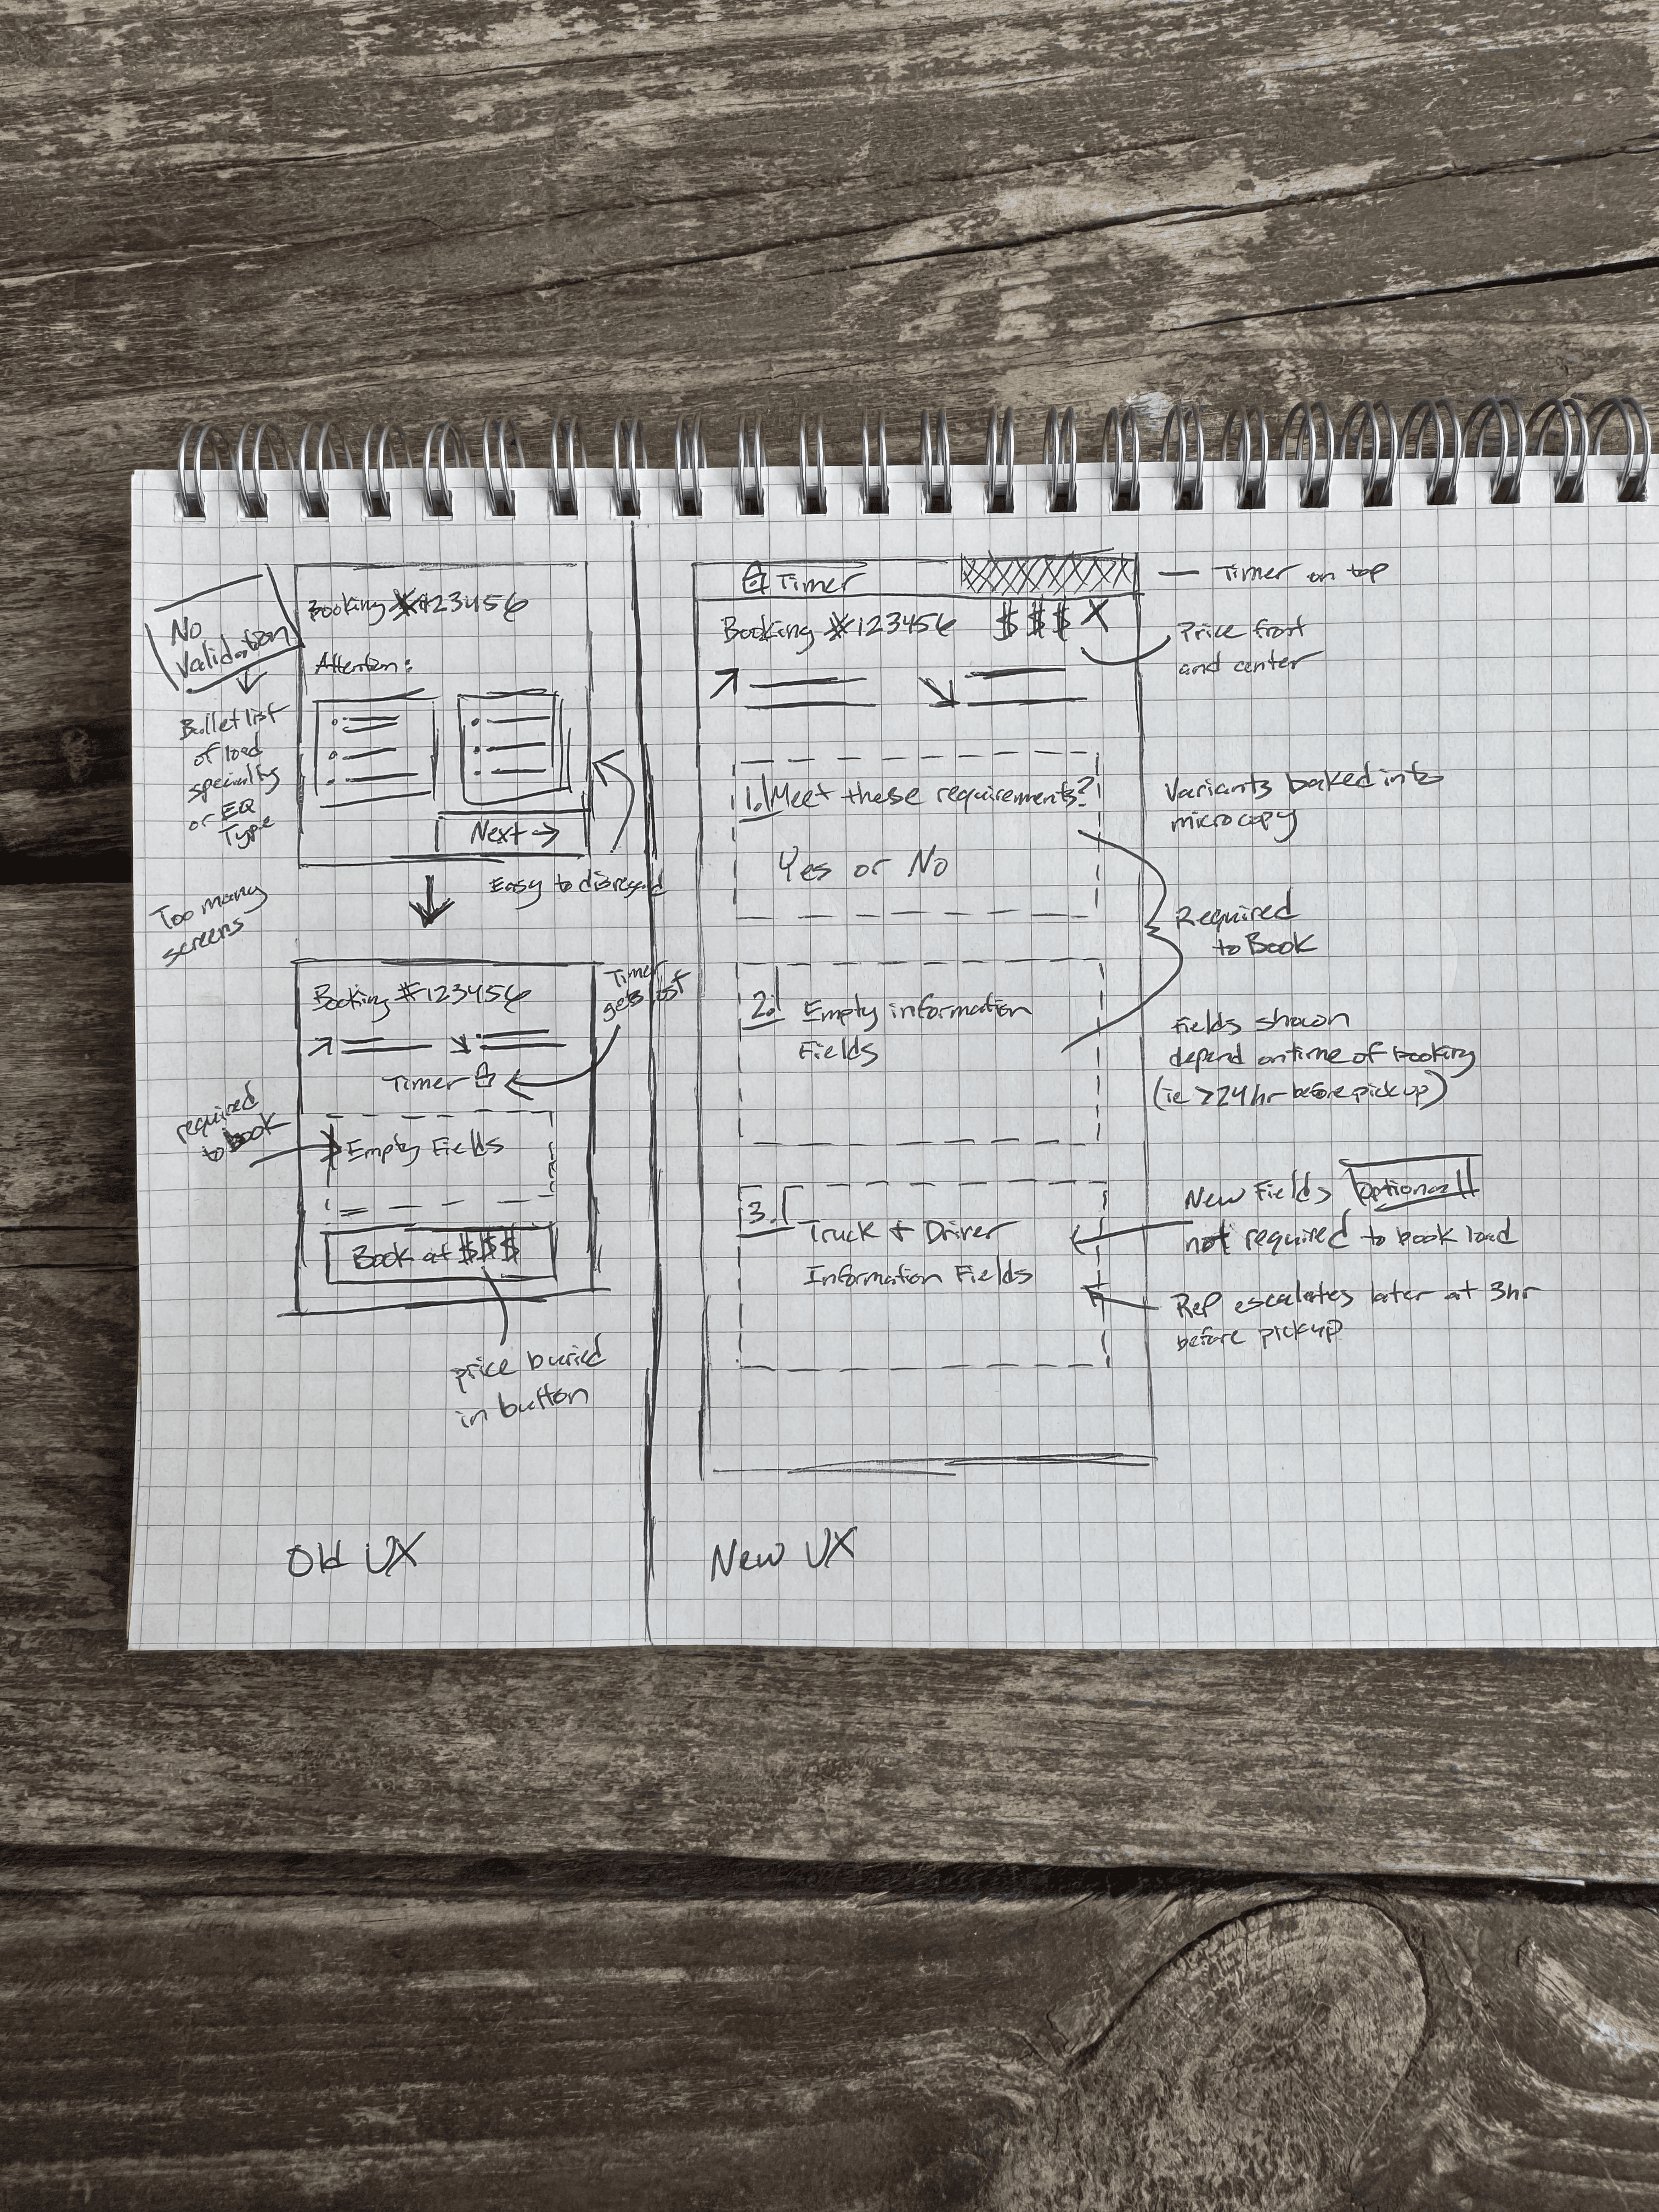 No
Validation
Bullet list
of load
specialty
or EQ
Type
Too many
screens
Booking #123456
Attention:
Next →
Easy to disregard
Booking #123456
Timer
gets lost
Timer
required
to book
Empty Fields
Book at $$$
price buried
in button
Old UX
Timer
Booking #123456 $$$ X
1. Meet these requirements?
Yes or No
2. Empty information
Fields
3. Truck & Driver
Information Fields
Timer on top
Price front
and center
Variants baked into
microcopy
Required
to Book
Fields shown
depend on time of booking
(ie >24hr before pickup)
New Fields optional
not required to book load
Rep escalates later at 3hr
before pickup
New UX